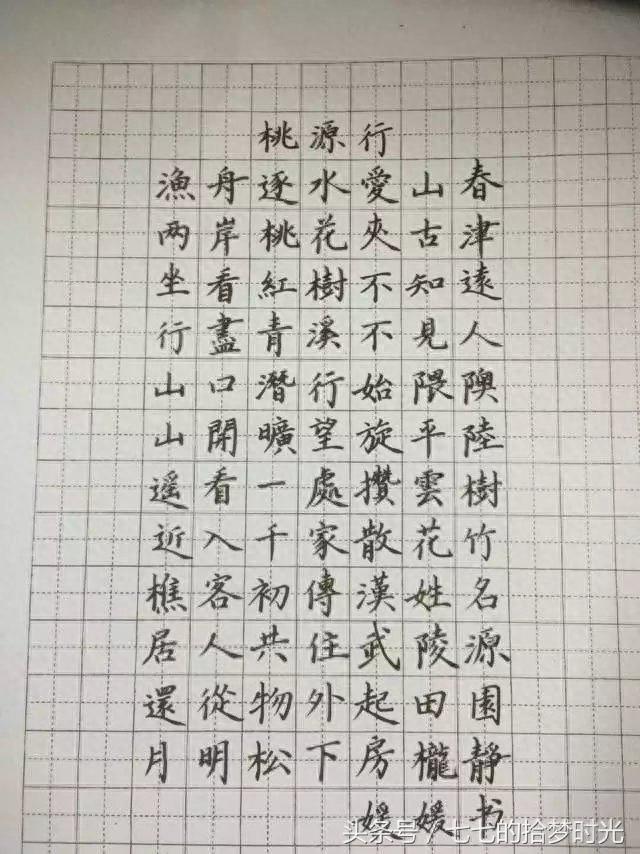 桃源行
漁舟逐水愛山春
两岸桃花夾古津
坐看紅樹不知遠
行盡青溪不見人
山口潛行始隈隩
山開曠望旋平陸
遥看一處攢雲樹
近入千家散花竹
樵客初傳漢姓名
居人共住武陵源
還從物外起田園
月明松下房櫳靜
媛媛书
头条号/七七的拾梦时光